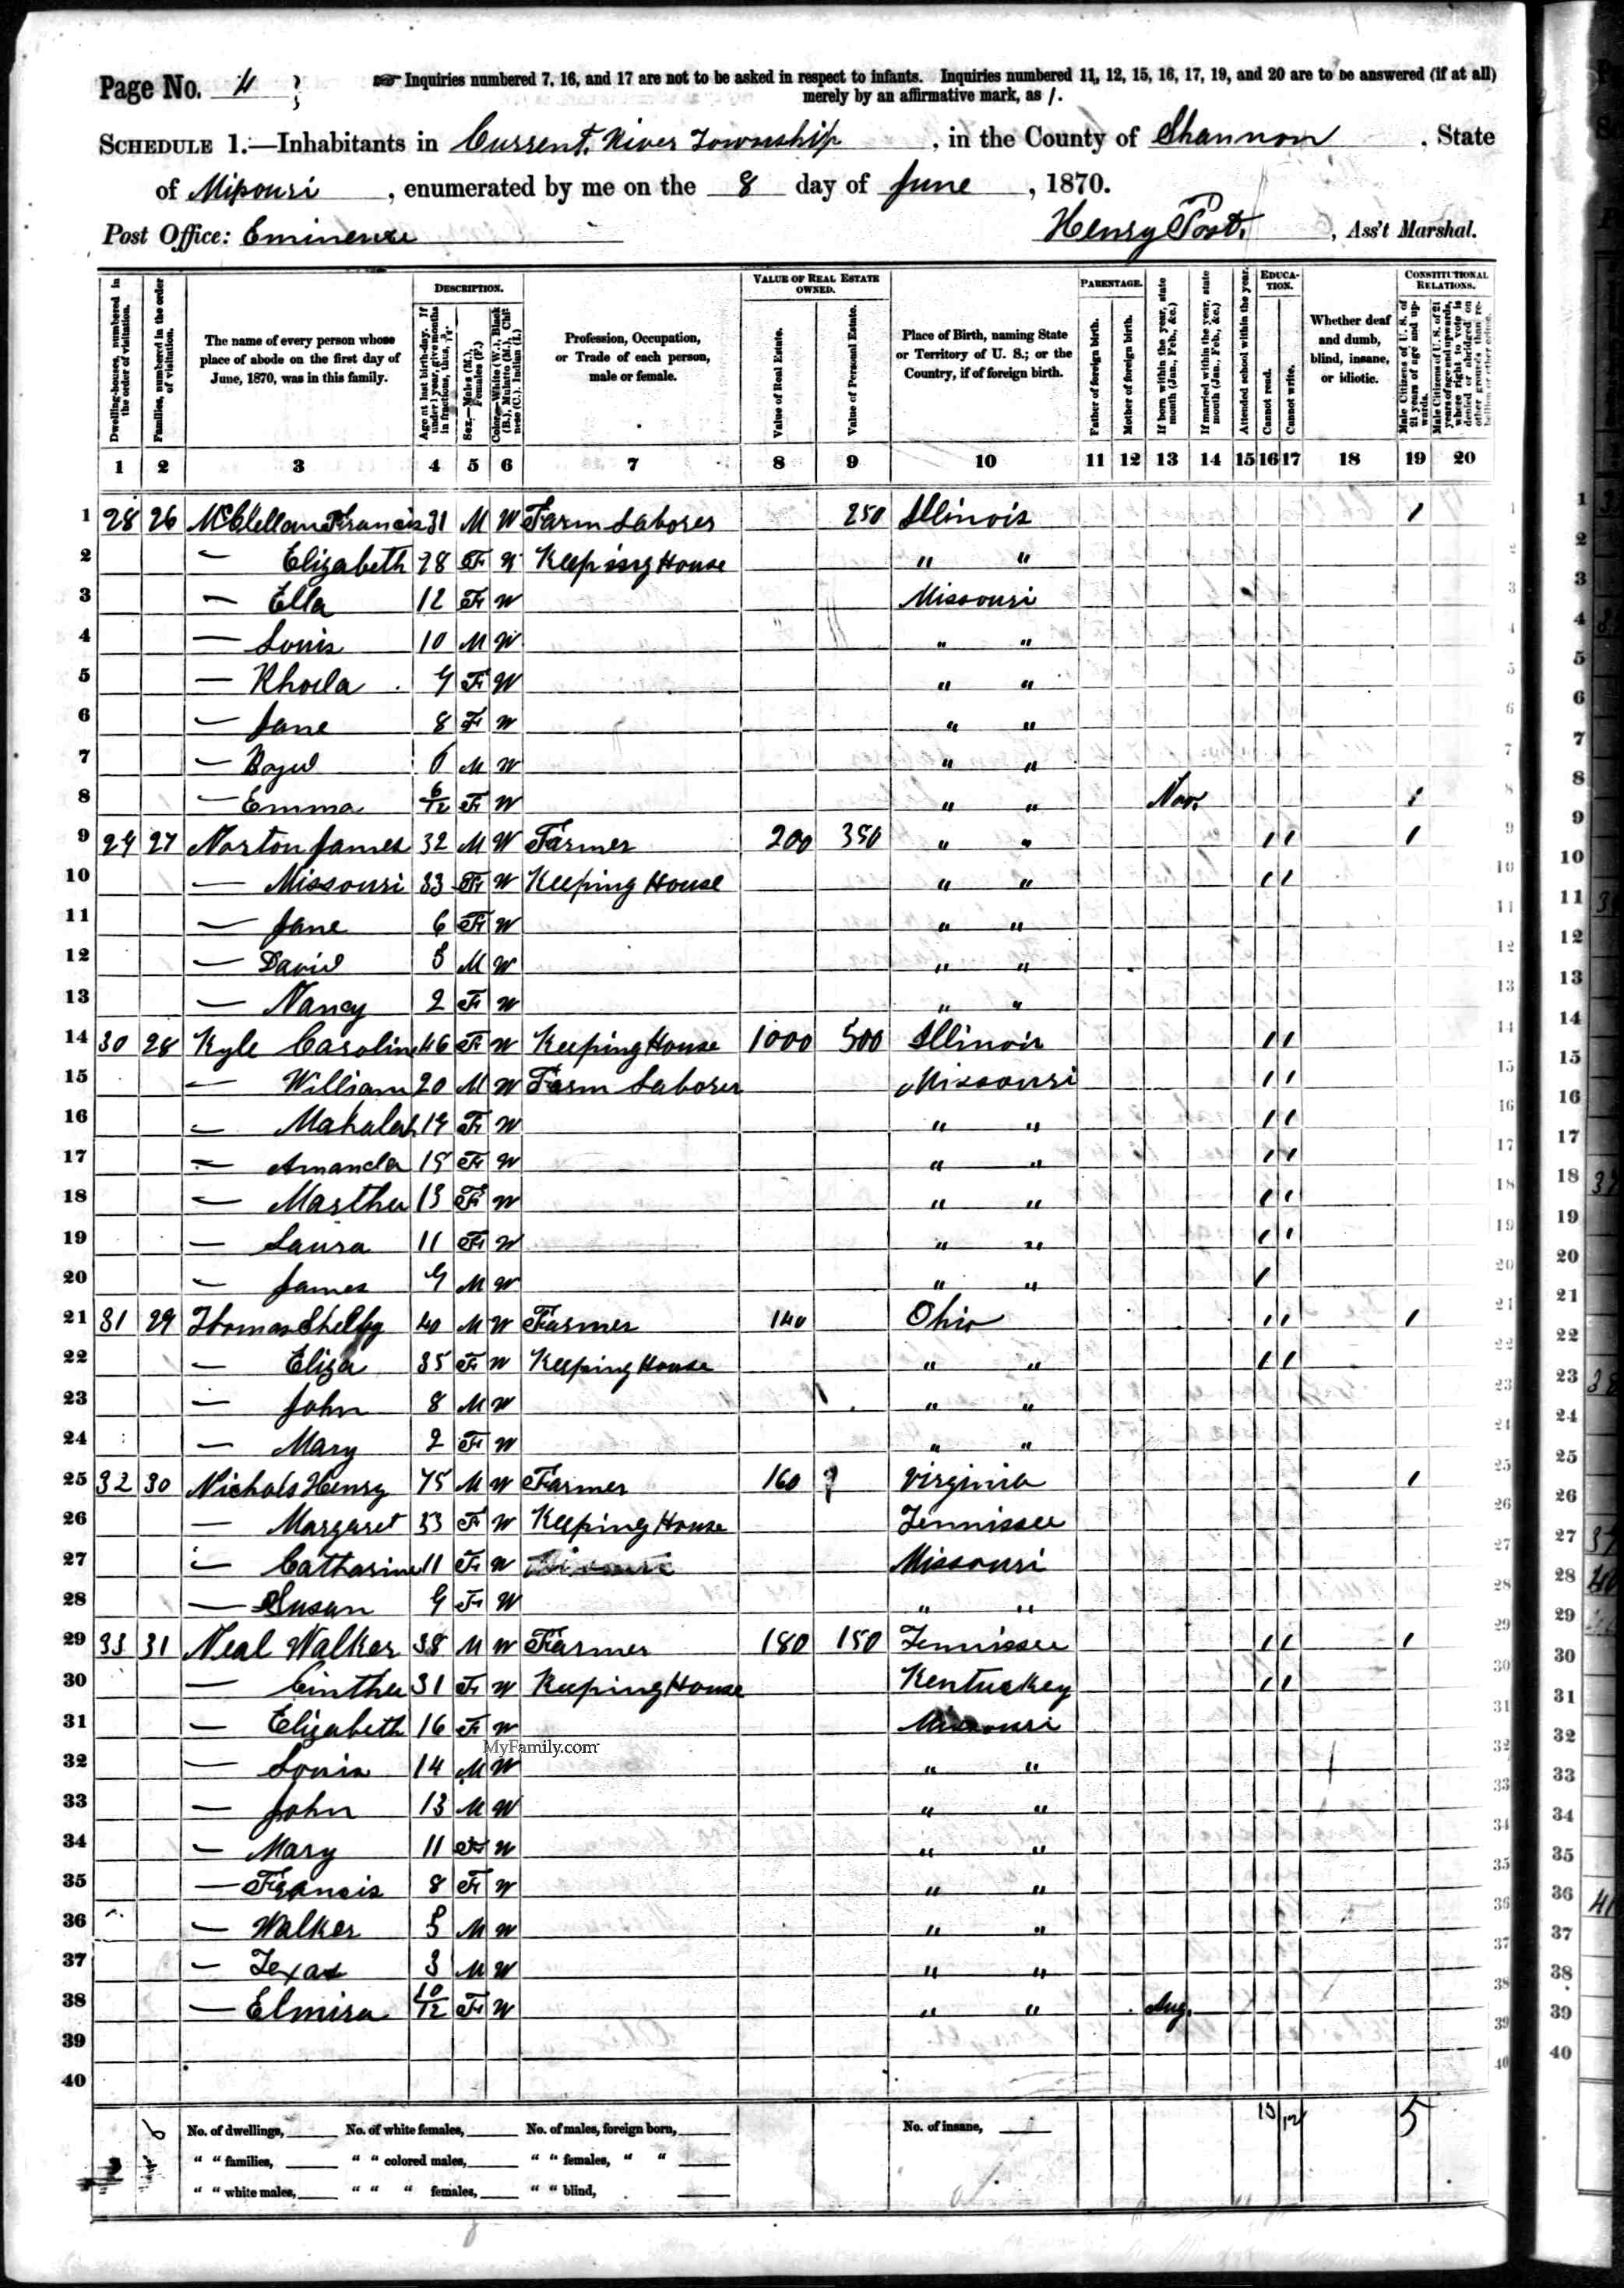 Page No. 4
☞ Inquiries numbered 7, 16, and 17 are not to be asked in respect to infants. Inquiries numbered 11, 12, 15, 16, 17, 19, and 20 are to be answered (if at all)
merely by an affirmative mark, as /.
SCHEDULE 1.—Inhabitants in Current River Township, in the County of Shannon, State
of Missouri, enumerated by me on the 8 day of June, 1870.
Post Office: Eminence
Henry Post, Ass't Marshal.
Dwelling-houses, numbered in the order of visitation.
Families, numbered in the order of visitation.
The name of every person whose place of abode on the first day of June, 1870, was in this family.
DESCRIPTION.
Age at last birth-day. If under 1 year, give months in fractions, thus, 3/12.
Sex.—Males (M.), Females (F.)
Color.—White (W.), Black (B.), Mulatto (M.), Chinese (C.), Indian (I.)
Profession, Occupation, or Trade of each person, male or female.
VALUE OF REAL ESTATE OWNED.
Value of Real Estate.
Value of Personal Estate.
Place of Birth, naming State or Territory of U. S.; or the Country, if of foreign birth.
PARENTAGE.
Father of foreign birth.
Mother of foreign birth.
If born within the year, state month (Jan., Feb., &c.)
If married within the year, state month (Jan., Feb., &c.)
Attended school within the year.
EDUCATION.
Cannot read.
Cannot write.
Whether deaf and dumb, blind, insane, or idiotic.
CONSTITUTIONAL RELATIONS.
Male Citizens of U. S. of 21 years of age and upwards.
Male Citizens of U. S. of 21 years of age and upwards, whose right to vote is denied or abridged on other grounds than rebellion or other crime.
1 2 3 4 5 6 7 8 9 10 11 12 13 14 15 16 17 18 19 20
1 28 26 McClellan Francis 31 M W Farm Laborer 250 Illinois /
2 — Elizabeth 28 F W Keeping House " "
3 — Ella 12 F W Missouri
4 — Louis 10 M W " "
5 — Rhoda 9 F W " "
6 — Jane 8 F W " "
7 — Boyd M W " "
8 — Emma 6/12 F W " " Nov.
9 29 27 Norton James 32 M W Farmer 200 350 " " / / /
10 — Missouri 33 F W Keeping House " " / /
11 — Jane 6 F W " "
12 — David M W " "
13 — Nancy 2 F W " "
14 30 28 Kyle Caroline 46 F W Keeping House 1000 500 Illinois / /
15 — William 20 M W Farm Laborer Missouri / /
16 — Mahalah 19 F W " " / /
17 — Amanda 15 F W " " / /
18 — Martha 13 F W " " / /
19 — Laura 11 F W " " / /
20 — James 9 M W " " /
21 31 29 Thomas Shelby 40 M W Farmer 140 Ohio / / /
22 — Eliza 35 F W Keeping House " " / /
23 — John 8 M W " "
24 — Mary 2 F W " "
25 32 30 Nichols Henry 75 M W Farmer 160 Virginia /
26 — Margaret 33 F W Keeping House Tennissee
27 — Catharine 11 F W Missouri
28 — Susan 9 F W " "
29 33 31 Neal Walker 38 M W Farmer 180 150 Tennissee / / /
30 — Cintha 31 F W Keeping House Kentuckey / /
31 — Elizabeth 16 F W Missouri
32 — Louis 14 M W " "
33 — John 13 M W " "
34 — Mary 11 F W " "
35 — Francis 8 F W " "
36 — Walker 5 M W " "
37 — Texas 3 M W " "
38 — Elmira 10/12 F W " " Aug.
39
40
MyFamily.com
No. of dwellings, No. of white females, No. of males, foreign born, No. of insane,
" " families, " " colored males, " " females, " "
" " white males, " " " females, " " blind,
6 13 12 5